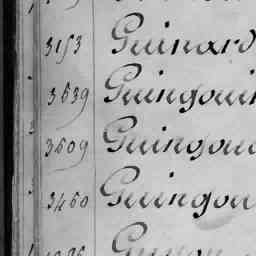 3153 Guinard
3639 Guingoui
3609 Guingou
3460 Guingou